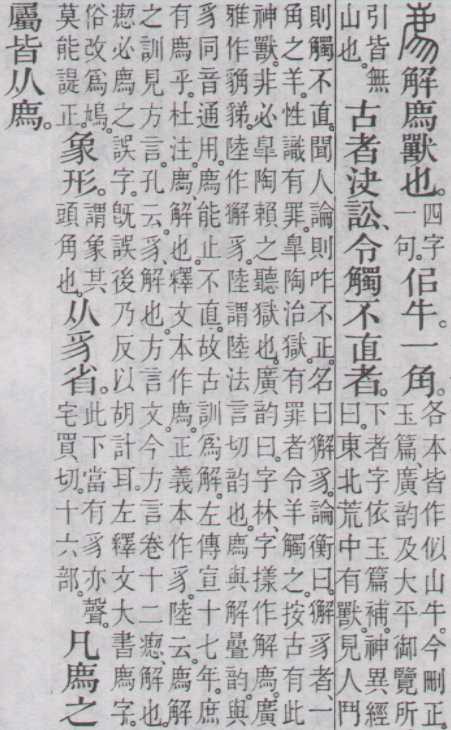 解廌獸也。四字一句。佀牛。一角。各本皆作似山牛。今刪正。玉篇、廣韵及大平御覽所
引皆無山也。古者決訟、令觸不直者。下者字依玉篇補。神異經曰。東北荒中有獸。見人鬥
則觸不直。聞人論則咋不正。名曰獬豸。論衡曰。獬豸者、一
角之羊。性識有罪。皋陶治獄。有罪者令羊觸之。按古有此
神獸。非必皋陶賴之聽獄也。廣韵曰。字林、字樣作解廌。廣
雅作。陸作獬豸。陸謂陸法言切韵也。廌與解疊韵。與
豸同音通用。廌能止不直。故古訓爲解。左傳宣十七年。庶
有廌乎。杜注。廌、解也。釋文本作廌。正義本作豸。陸云。廌解
之訓見方言。孔云。豸、解也。方言文。今方言卷十二瘛、解也。
瘛必廌之誤字。旣誤後乃反以胡計耳。左釋文大書廌字。
俗改爲鳩。莫能諟正。象形。謂象其頭角也。从豸省。此下當有豸亦聲。宅買切。十六部。凡廌之
屬皆从廌。